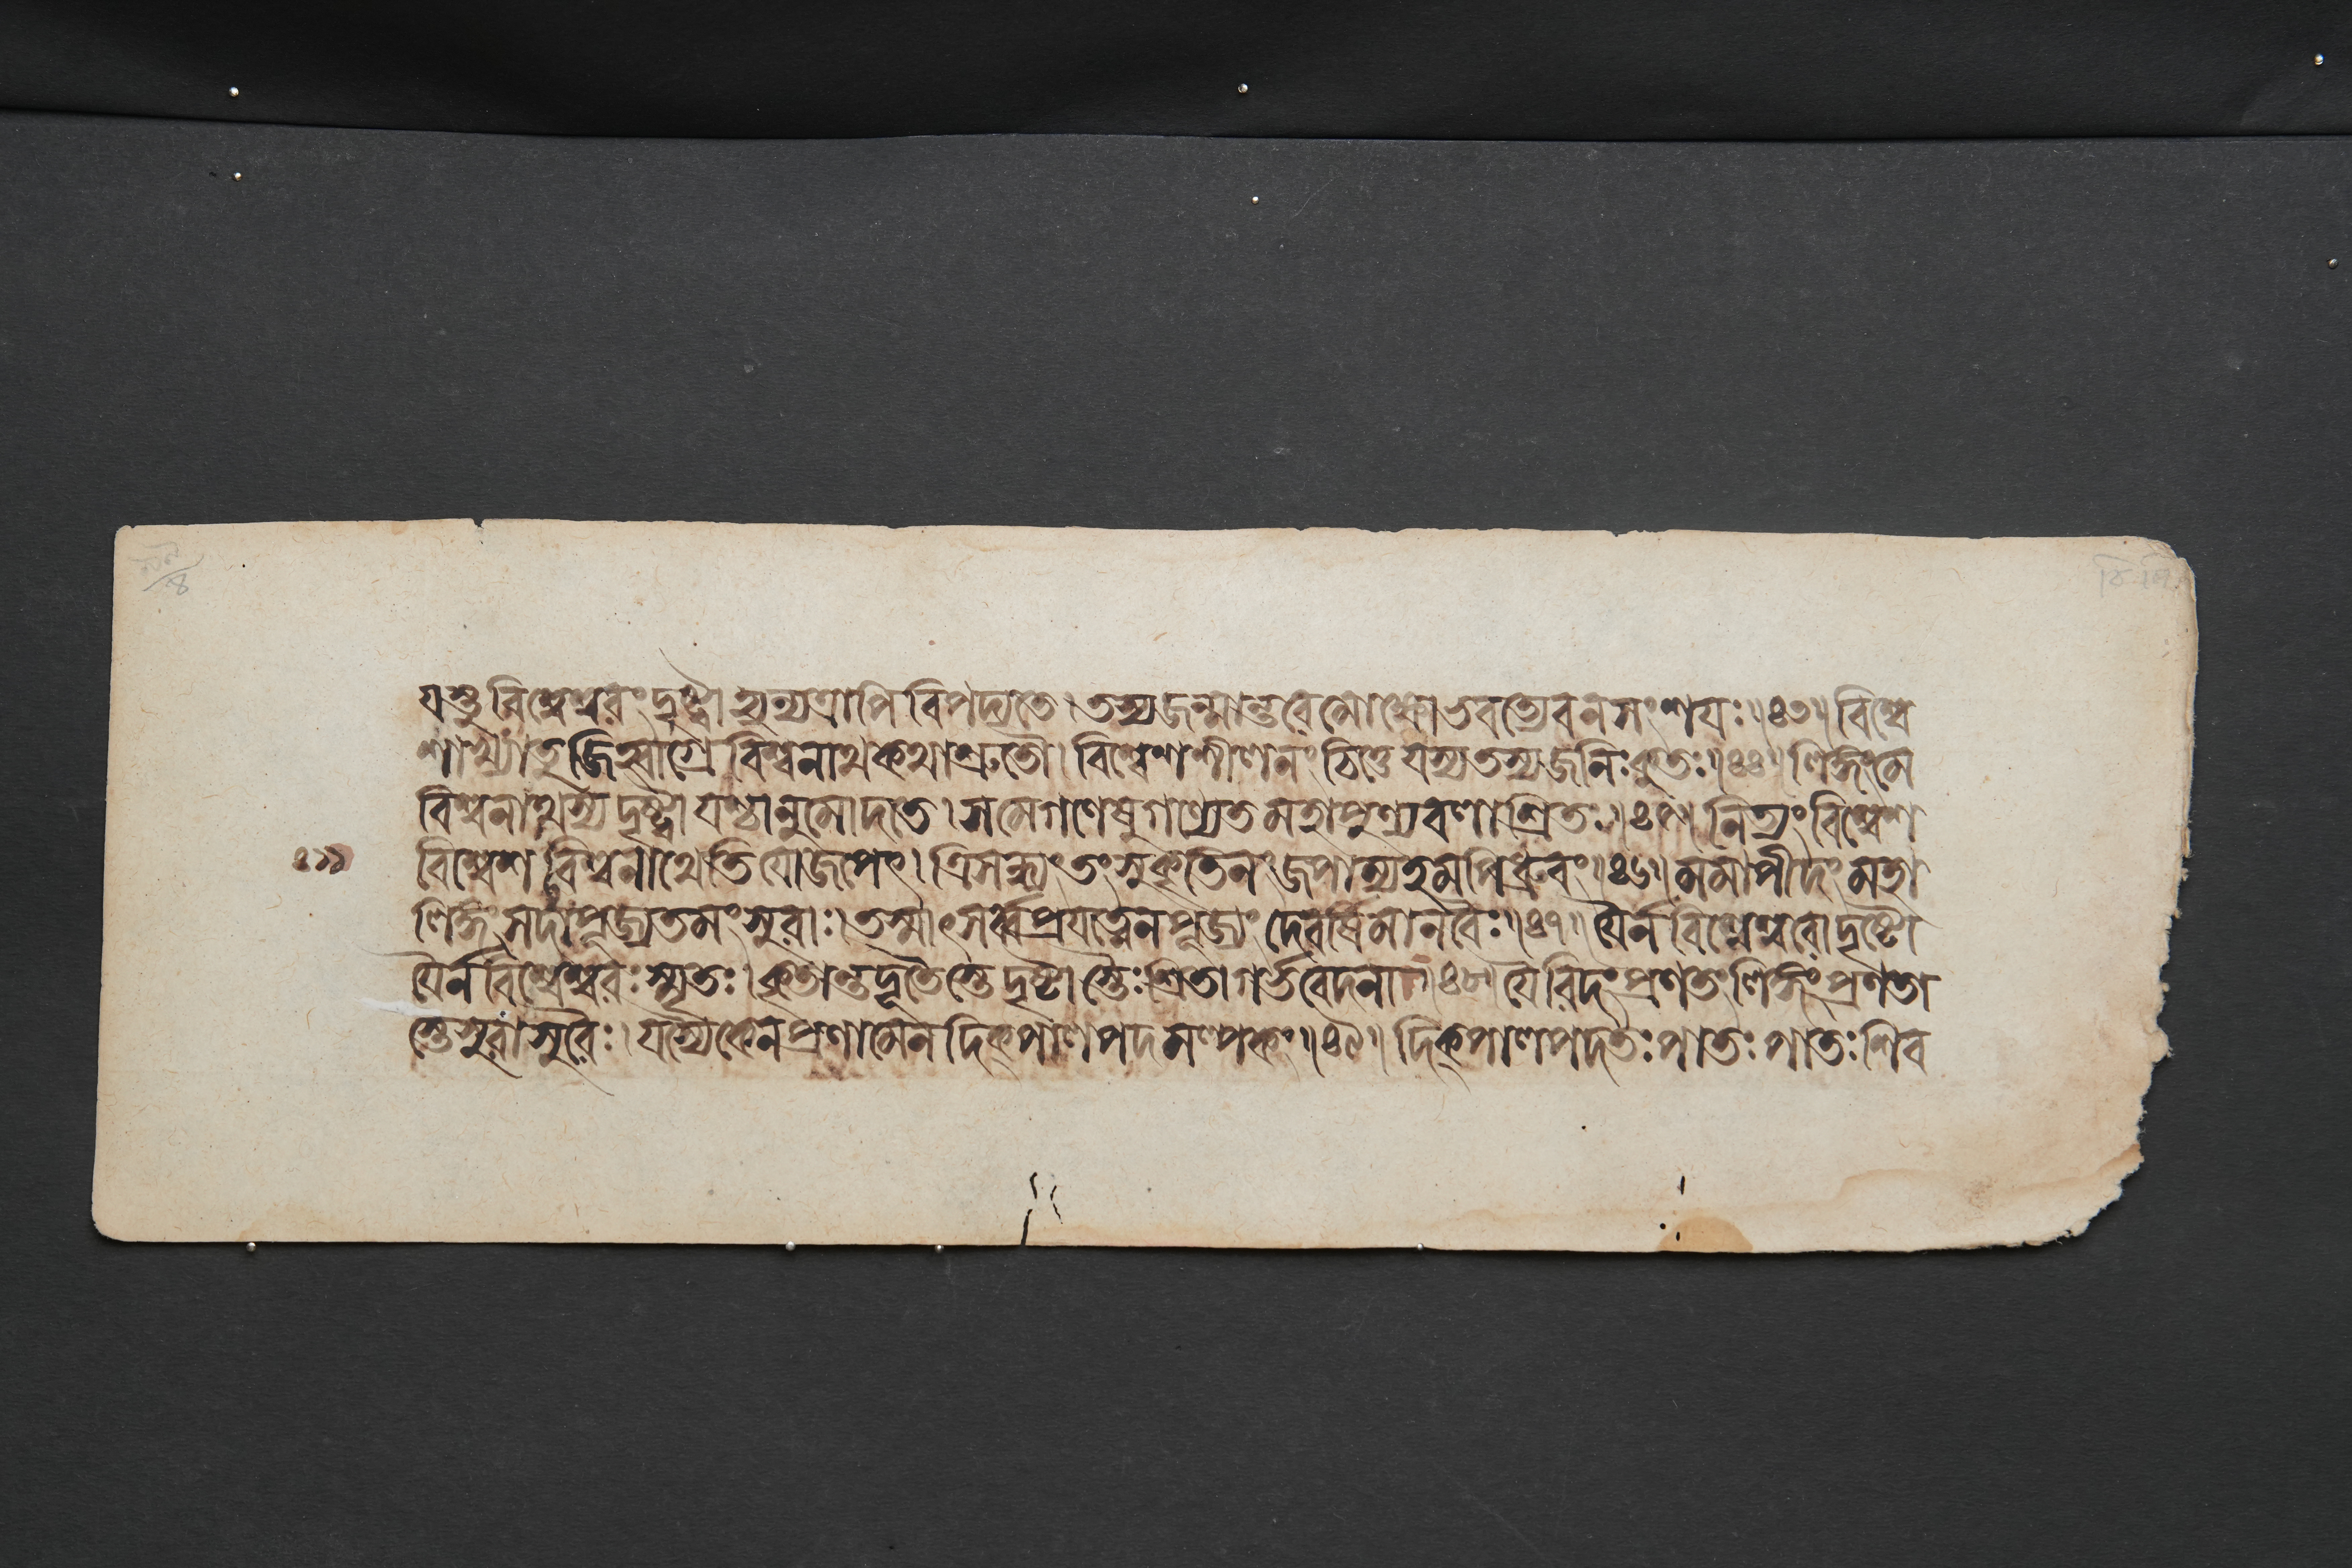 যস্তু বিশ্বেশ্বরং দৃষ্ট্বা হ্যন্যত্রাপি বিপদ্যতে । তস্য জন্মান্তরে মোক্ষো ভবত্যেব ন সংশয়ঃ ॥ ৪৩ ॥ বিশ্বে
শাখ্যা তু জিহ্বাগ্রে বিশ্বনাথকথা শ্রুতৌ । বিশ্বেশশীলনং চিত্তে যস্য তস্য জনিঃ কুতঃ ॥ ৪৪ ॥ লিঙ্গং মে
বিশ্বনাথস্য দৃষ্ট্বা যশ্চানুমোদতে । স মে গণেষু গণ্যেত মহাপুণ্যবলাশ্রিতঃ ॥ ৪৫ ॥ নিত্যং বিশ্বেশ
বিশ্বেশ বিশ্বনাথেতি যো জপেৎ । ত্রিসন্ধ্যং তং সুকৃতিনং জপাম্যহমপি ধ্রুবং ॥ ৪৬ ॥ মমাপীদং মহা
লিঙ্গং সদা পূজ্যতমং সুরাঃ । তস্মাৎ সর্ব্বপ্রযত্নেন পূজ্যং দেবর্ষিমানবৈঃ ॥ ৪৭ ॥ যৈর্ন বিশ্বেশ্বরো দৃষ্টো
যৈর্ন বিশ্বেশ্বরঃ স্মৃতঃ । কৃতান্তদূতৈস্তে দৃষ্টাস্তৈঃ শ্রিতা গর্ভবেদনা ॥ ৪৮ ॥ যৈরিদং প্রণতং লিঙ্গং প্রণতা
স্তে সুরাসুরৈঃ । যস্যৈকেন প্রণামেন দিক্পালপদমল্পকং ॥ ৪৯ ॥ দিক্পালপদতঃ পাতঃ পাতঃ শিব